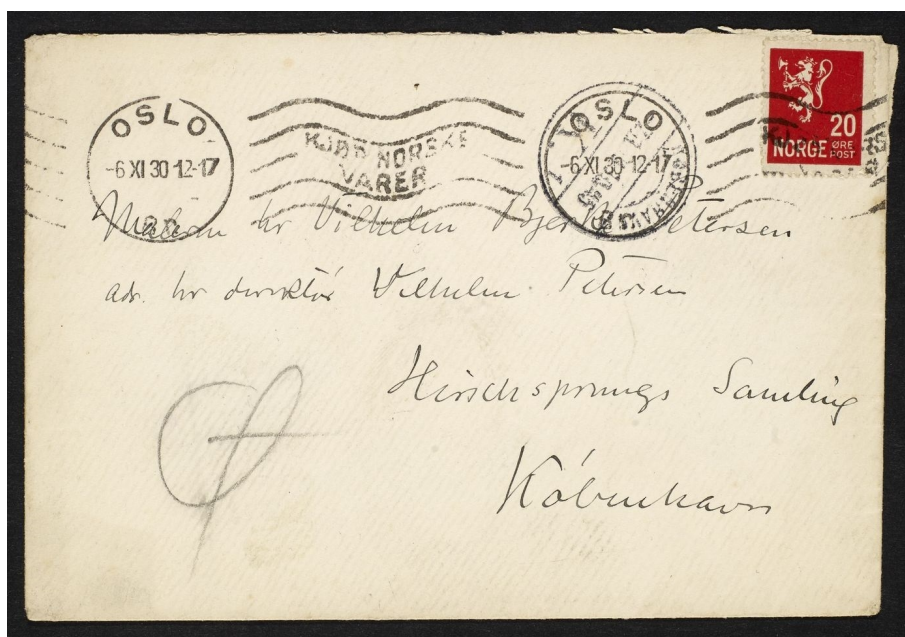 OSLO
-6 XI 30 12-17
KJØP NORSKE
VARER
OSLO
-6 XI 30 12-17
KØBENHAVN
20
NORGE ØRE
POST
Maleren hr Vilhelm Bjerke Petersen
adr. hr direktör Vilhelm Petersen
Hirschsprungs Samling
København